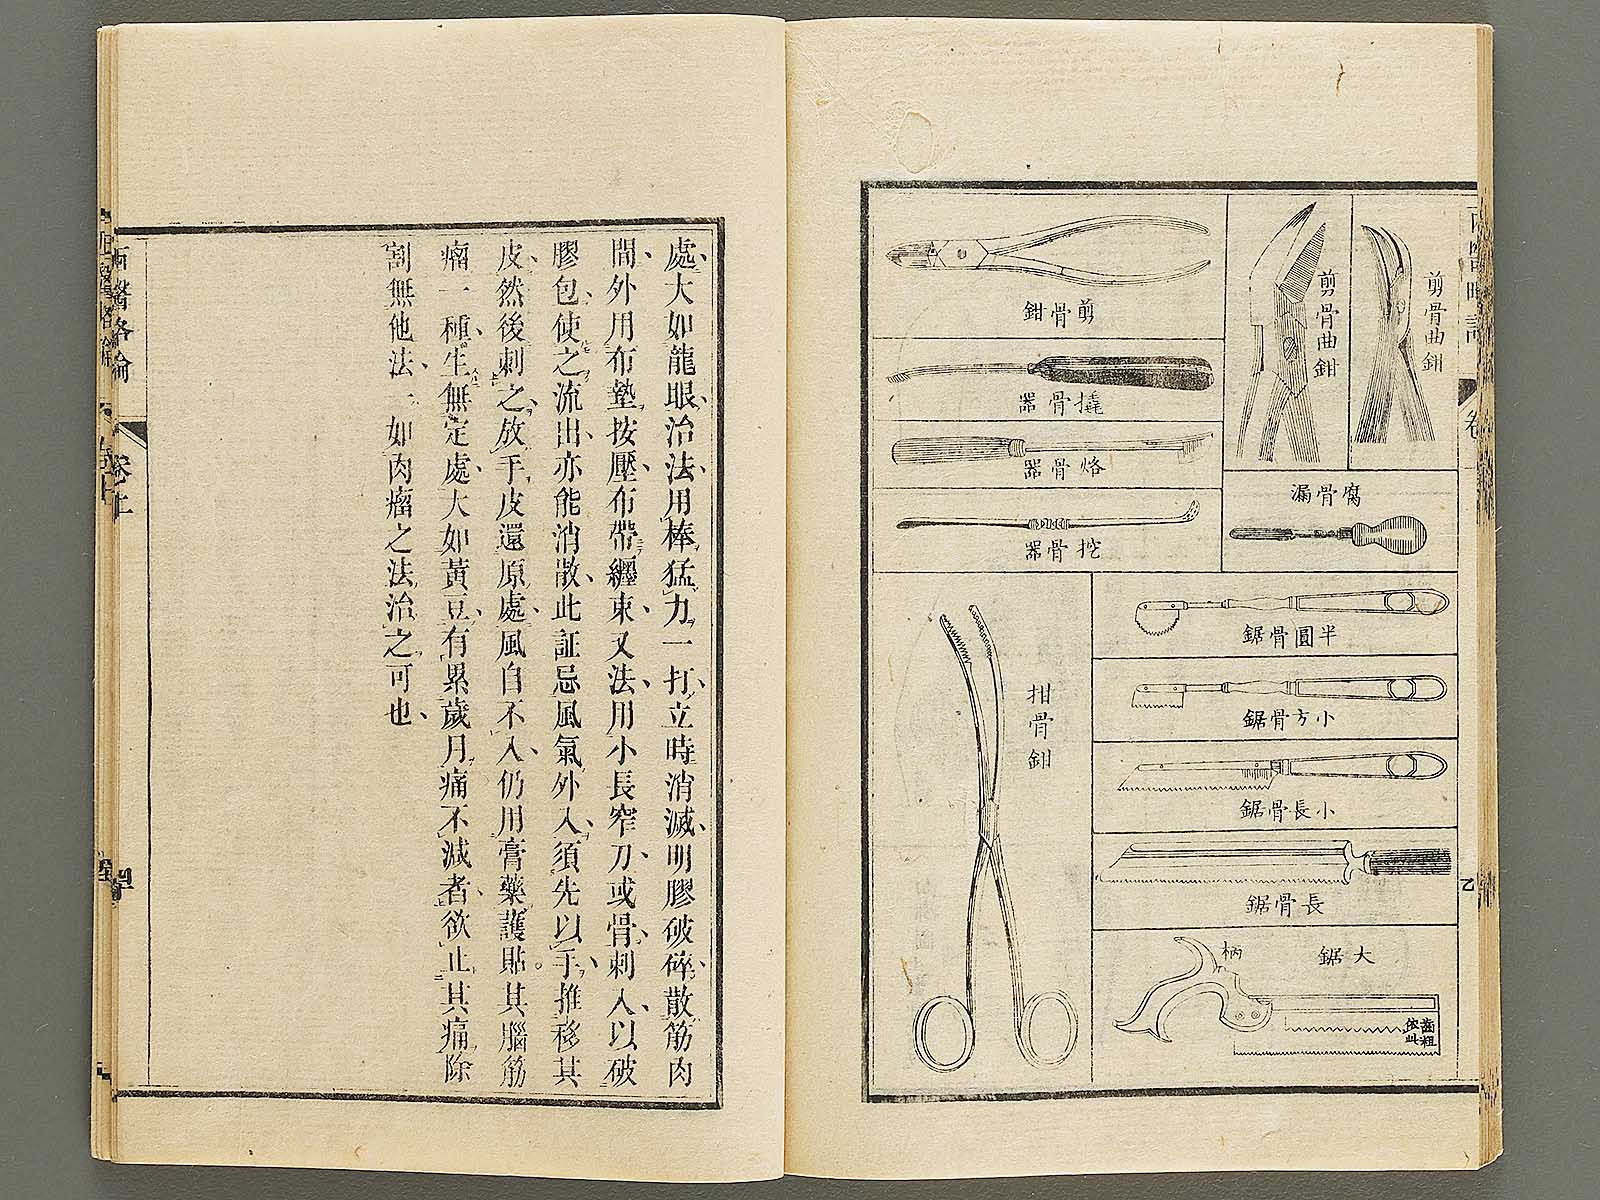 剪骨曲鉗
剪骨曲鉗
剪骨鉗
撬骨器
烙骨器
挖骨器
腐骨漏
半圓骨鋸
小方骨鋸
小長骨鋸
長骨鋸
大鋸
柄
齒粗
依此
拑骨鉗
乙
處大如龍眼治法用棒猛力一打立時消滅明膠破碎散筋肉
間外用布墊按壓布帶纒束又法用小長窄刀或骨刺入以破
膠包使之流出亦能消散此証忌風氣外入須先以手推移其
皮然後刺之放手皮還原處風自不入仍用膏藥護貼其腦筋
瘤一種生無定處大如黃豆有累歲月痛不減者欲止其痛除
割無他法一如肉瘤之法治之可也
西醫略論
卷上